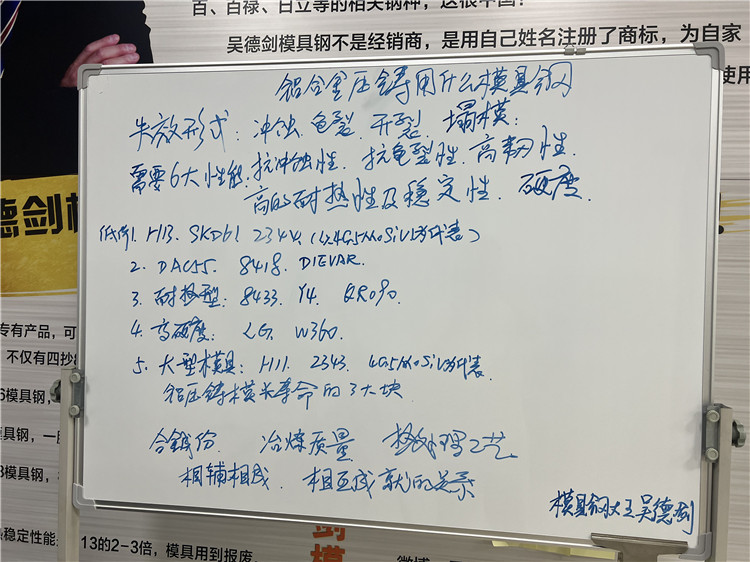 百、百禄、日立等的相关钢种，这根
吴德剑模具钢不是经销商，是用自己姓名注册了商标，为自家
使用
铝合金压铸用什么模具钢
失效形式：冲蚀、龟裂、开裂、塌模：
需要6大性能、抗冲蚀性、抗龟裂性、高韧性、
高的耐热性及稳定性、硬度、
1. H13. SKD61 2344.
2. DAC55. 8418. DIEVAR.
3. 耐热型：8433. Y4. QRO90.
4. 高硬度：LG. W360.
5. 大型模具：H11. 2343.
铝压铸模长寿命的3大块
冶炼质量 热处理工艺
相辅相成、相互成就的关系
模具钢大王吴德剑
德剑模
专有产品，可
不仅有四抄
模具钢，
稳定性能
13的2-3倍，模具用到报废。
剑
模
微博